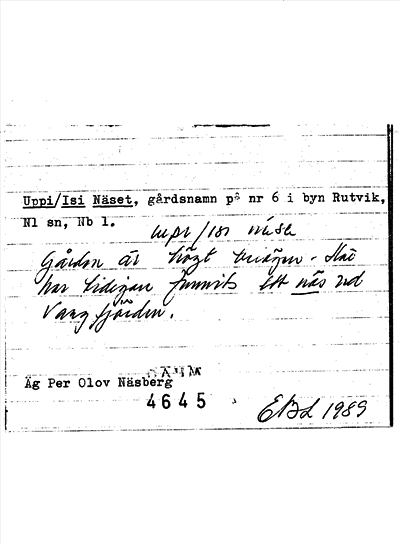 Uppi/Isi Näset, gårdsnamn på nr 6 i byn Rutvik,
Nl sn, Nb l.
uпpi/isi
Gården är högt belägen. Här
har tidigare funnits ett näs vid
Vangfjärden.
Äg Per Olov Näsberg
DAUM
4645
EBL 1989